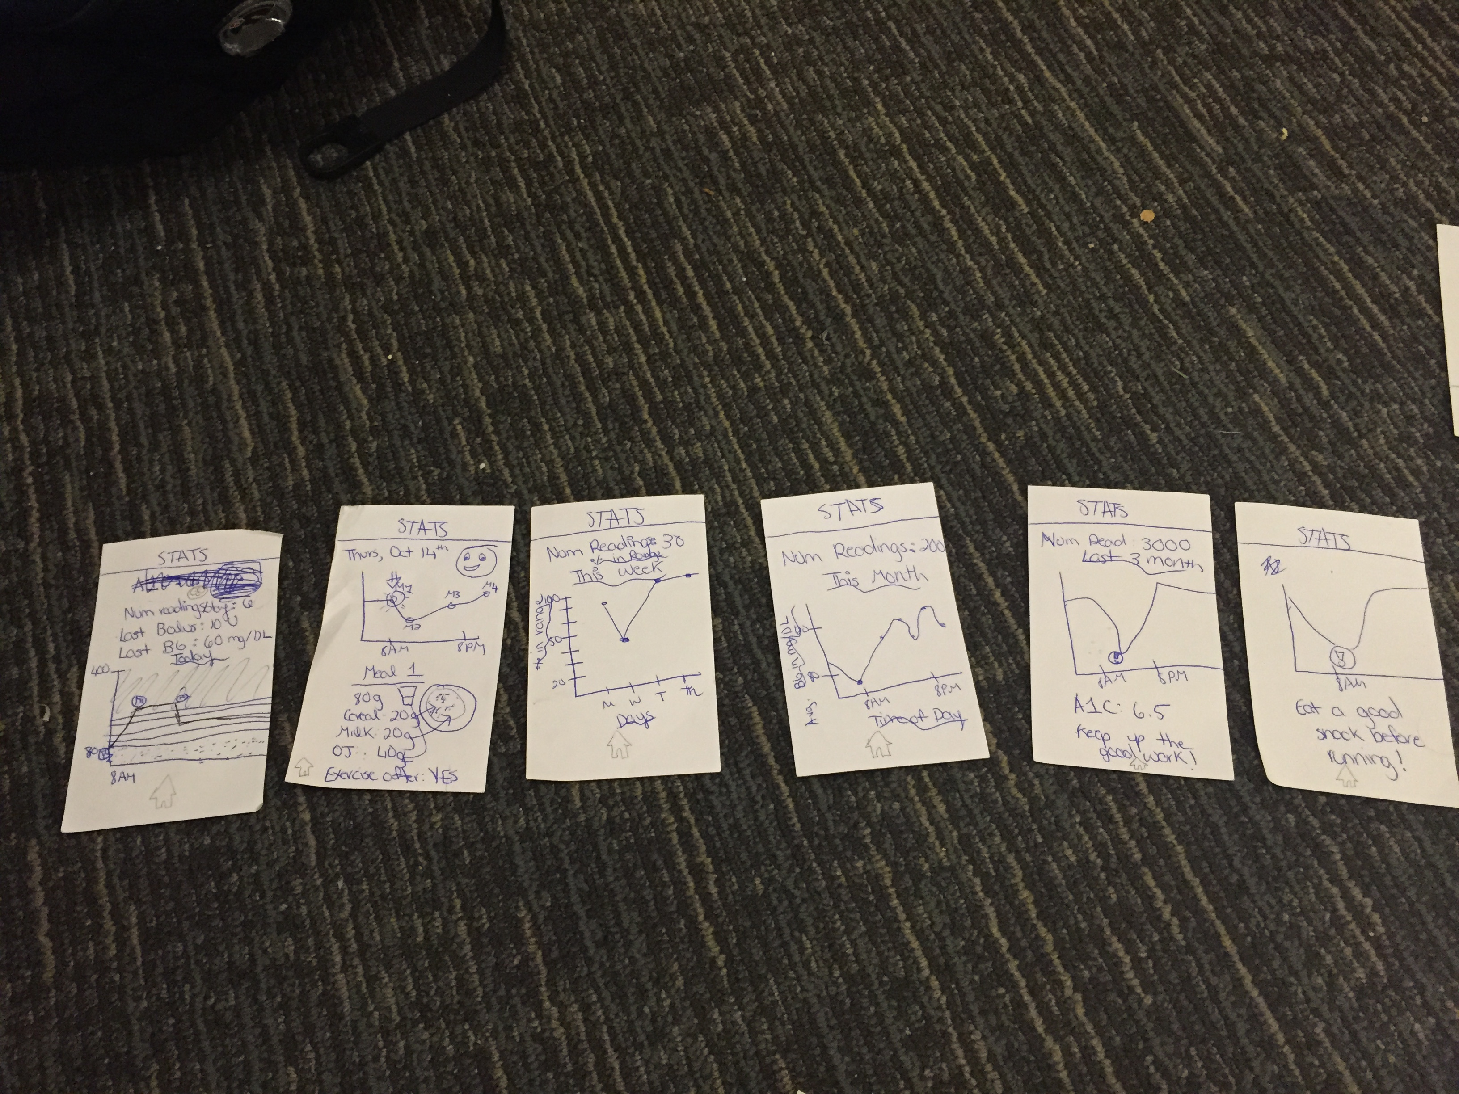 STATS
Num readings: 6
Last Bolus: 10
Last BG: 60 mg/DL
Today
400
80
8AM
STATS
Thurs, Oct 14th
M2
M3
M4
8AM
8PM
Meal 1
80g
Cereal: 20g
Milk: 20g
OJ: 40g
Exercise after: YES
STATS
Num Readings 30
This Week
% in range
100
50
20
M
W
T
Th
Days
STATS
Num Readings: 200
This Month
8AM
8PM
Time of Day
STATS
Num Read 3000
Last 3 month
8AM
8PM
A1C: 6.5
Keep up the
good work!
STATS
8AM
Eat a good
snack before
running!